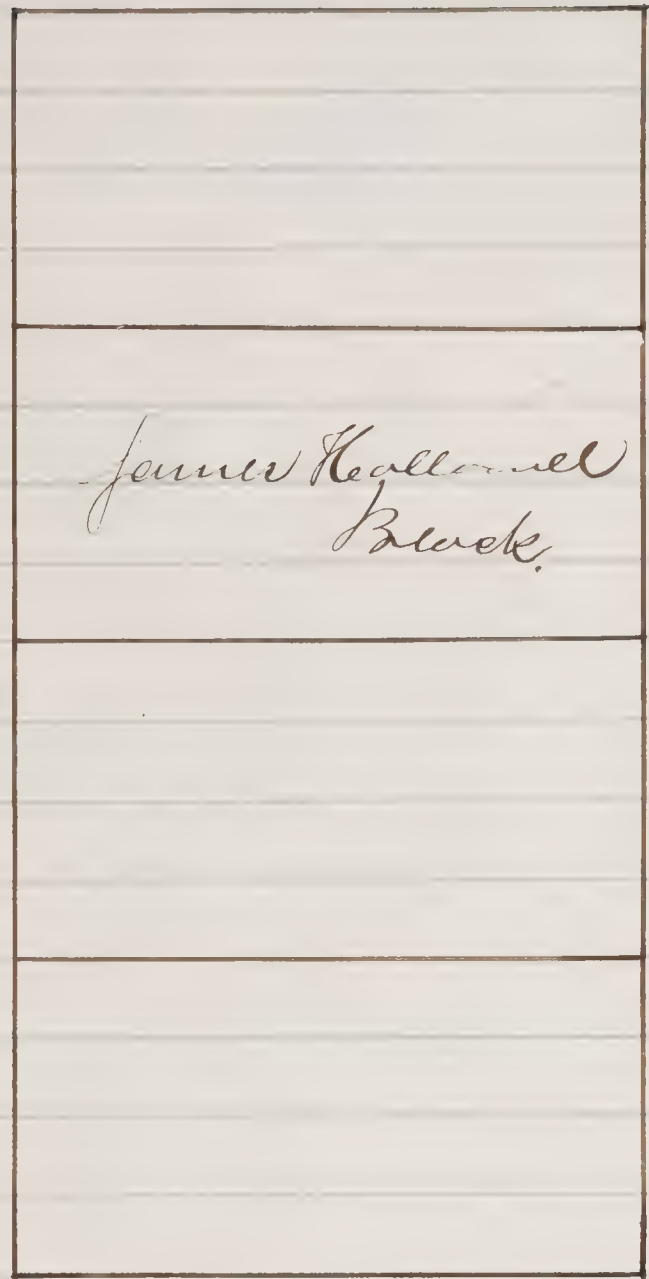 James Hallowell
Black.